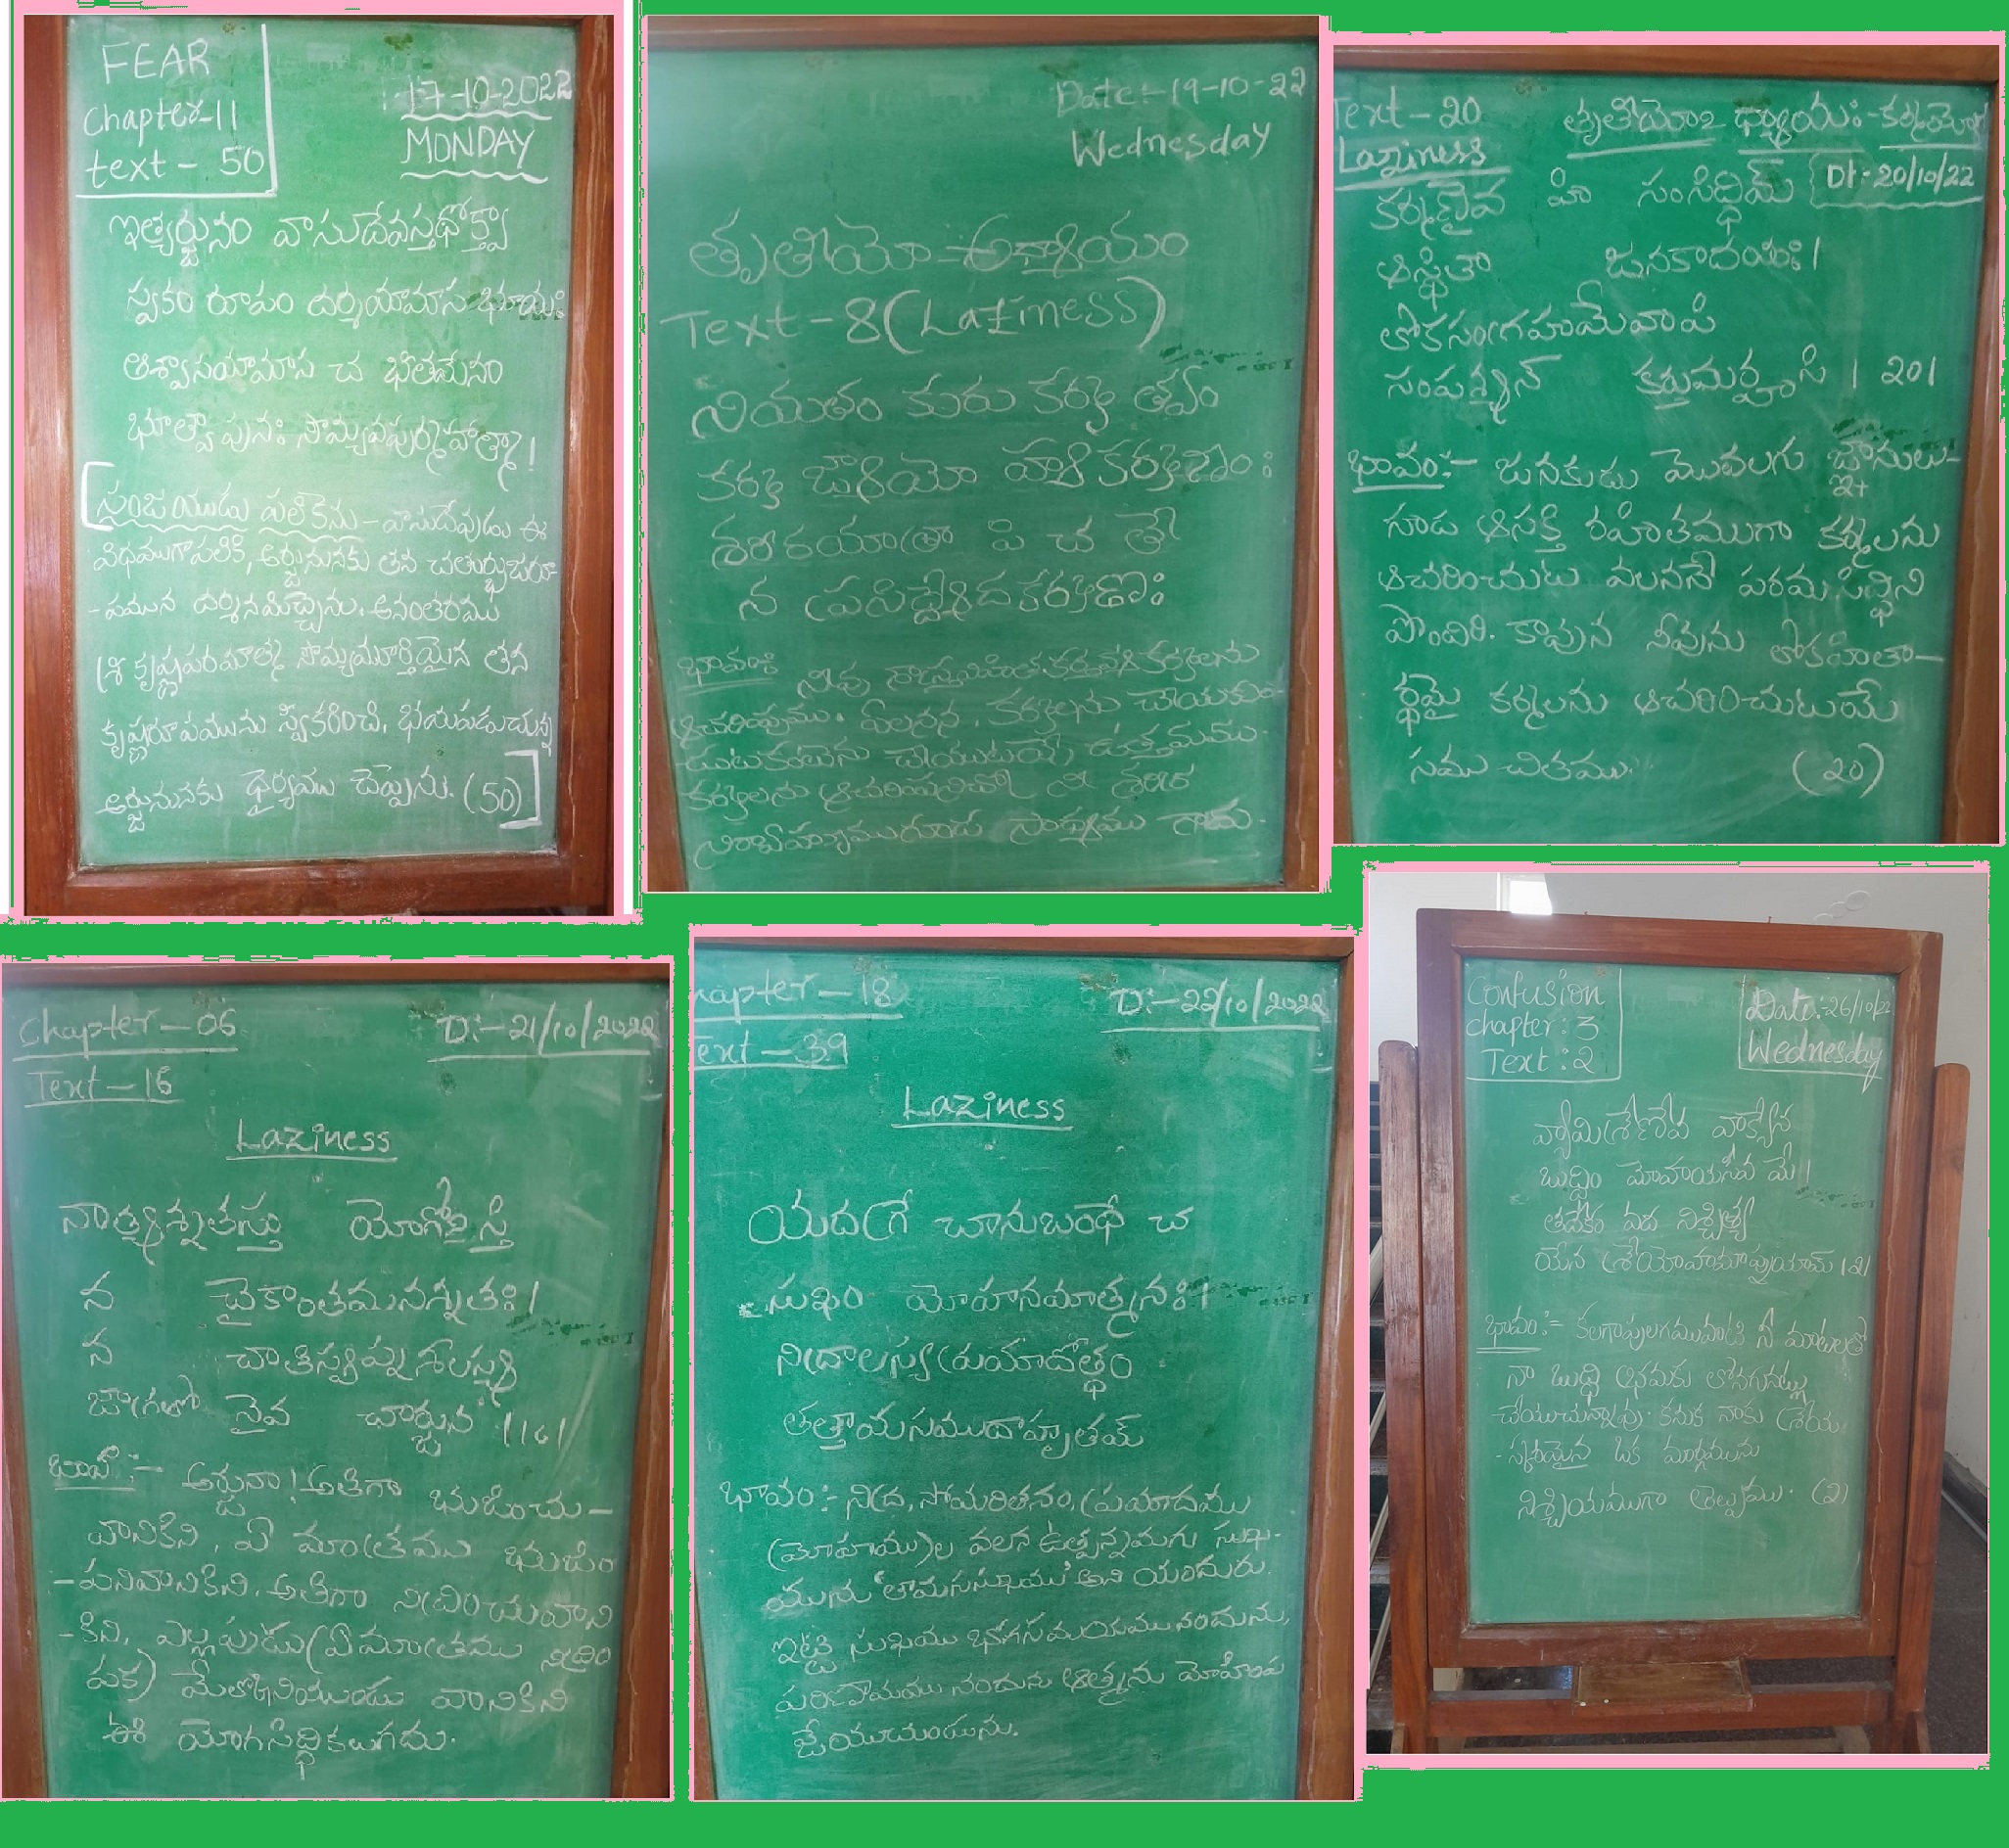 FEAR
Chapter-11
text - 50
17-10-2022
MONDAY
ఇత్యర్జునం వాసుదేవస్తథోక్త్వా
స్వకం రూపం దర్శయామాస భూయః
ఆశ్వాసయామాస చ భీతమేనం
భూత్వా పునః సౌమ్యవపుర్మహాత్మా!
సంజయుడు పలికెను - వాసుదేవుడు ఈ
విధముగా పలికి, అర్జునునకు తన చతుర్భుజరూ-
-పమున దర్శనమిచ్చెను. అనంతరము
శ్రీ కృష్ణపరమాత్మ సౌమ్యమూర్తియైన తన
కృష్ణరూపమును స్వీకరించి, భయపడుచున్న
అర్జునునకు ధైర్యము చెప్పెను. (50)
Date:- 19-10-22
Wednesday
తృతీయో
Text - 8 (Laziness)
నియతం కురు కర్మ త్వం
కర్మ జ్యాయో హ్యకర్మణం:
శరీరయాత్రా పి చ తే
న ప్రసిద్ధ్యేదకర్మణః
భావం: నీవు శాస్త్రవిహిత కర్తవ్యకర్మలను
ఆచరింపుము. ఏలనన, కర్మలను చేయకుం-
డుటకంటెను చేయుటయే ఉత్తమము.
కర్మలను ఆచరింపనిచో నీ శరీర
నిర్వాహణముకూడ సాధ్యము గాదు.
Text - 20
Laziness
తృతీయోఽ ధ్యాయః - కర్మయో
Dt:- 20/10/22
కర్మణైవ హి సంసిద్ధిమ్
ఆస్థితా జనకాదయః।
లోకసంగ్రహమేవాపి
సంపశ్యన్ కర్తుమర్హసి । 20।
భావం:- జనకుడు మొదలగు జ్ఞానులు-
సూడ ఆసక్తి రహితముగా కర్మలను
ఆచరించుట వలననే పరమసిద్ధిని
పొందిరి. కావున నీవును లోకహితా-
ర్థమై కర్మలను ఆచరించుటయే
సముచితము. (20)
Chapter - 06
Text - 16
D:- 21/10/2022
Laziness
నాత్యశ్నతస్తు యోగోఽస్తి
న చైకాంతమనశ్నతః।
న చాతిస్వప్నశీలస్య
జాగ్రతో నైవ చార్జున ।16।
భావం:- అర్జునా! అతిగా భుజించు-
వానికిని, ఏ మాత్రము భుజిం
-పనివానికిని, అతిగా నిద్రించువాని
-కిని, ఎల్లపుడు (ఏమాత్రము నిద్రిం
పక) మేల్కొనియుండు వానికిని
ఈ యోగసిద్ధి కలుగదు.
hapter - 18
ext - 39
D:- 22/10/2022
Laziness
యదగ్రే చానుబంధే చ
సుఖం మోహనమాత్మనః।
నిద్రాలస్యప్రమాదోత్థం
తత్తామసముదాహృతమ్
భావం:- నిద్ర, సోమరితనం, ప్రమాదము
(మోహము)ల వలన ఉత్పన్నమగు సుఖ-
మును 'తామససుఖము' అని యందురు.
ఇట్టి సుఖము భోగసమయమునందును,
పరిణామము నందును ఆత్మను మోహింప
జేయుచుండును.
Confusion
chapter: 3
Text: 2
Date: 26/10/22
Wednesday
వ్యామిశ్రేణేవ వాక్యేన
బుద్ధిం మోహయసీవ మే।
తదేకం వద నిశ్చిత్య
యేన శ్రేయోహమాప్నుయామ్ ।2।
భావం:= కలగాపులగమువంటి నీ మాటలతో
నా బుద్ధి భ్రమకు లోనగునట్లు
చేయుచున్నావు. కనుక నాకు శ్రేయ
-స్కరమైన ఒక మార్గమును
నిశ్చయముగా తెల్పుము. (2)